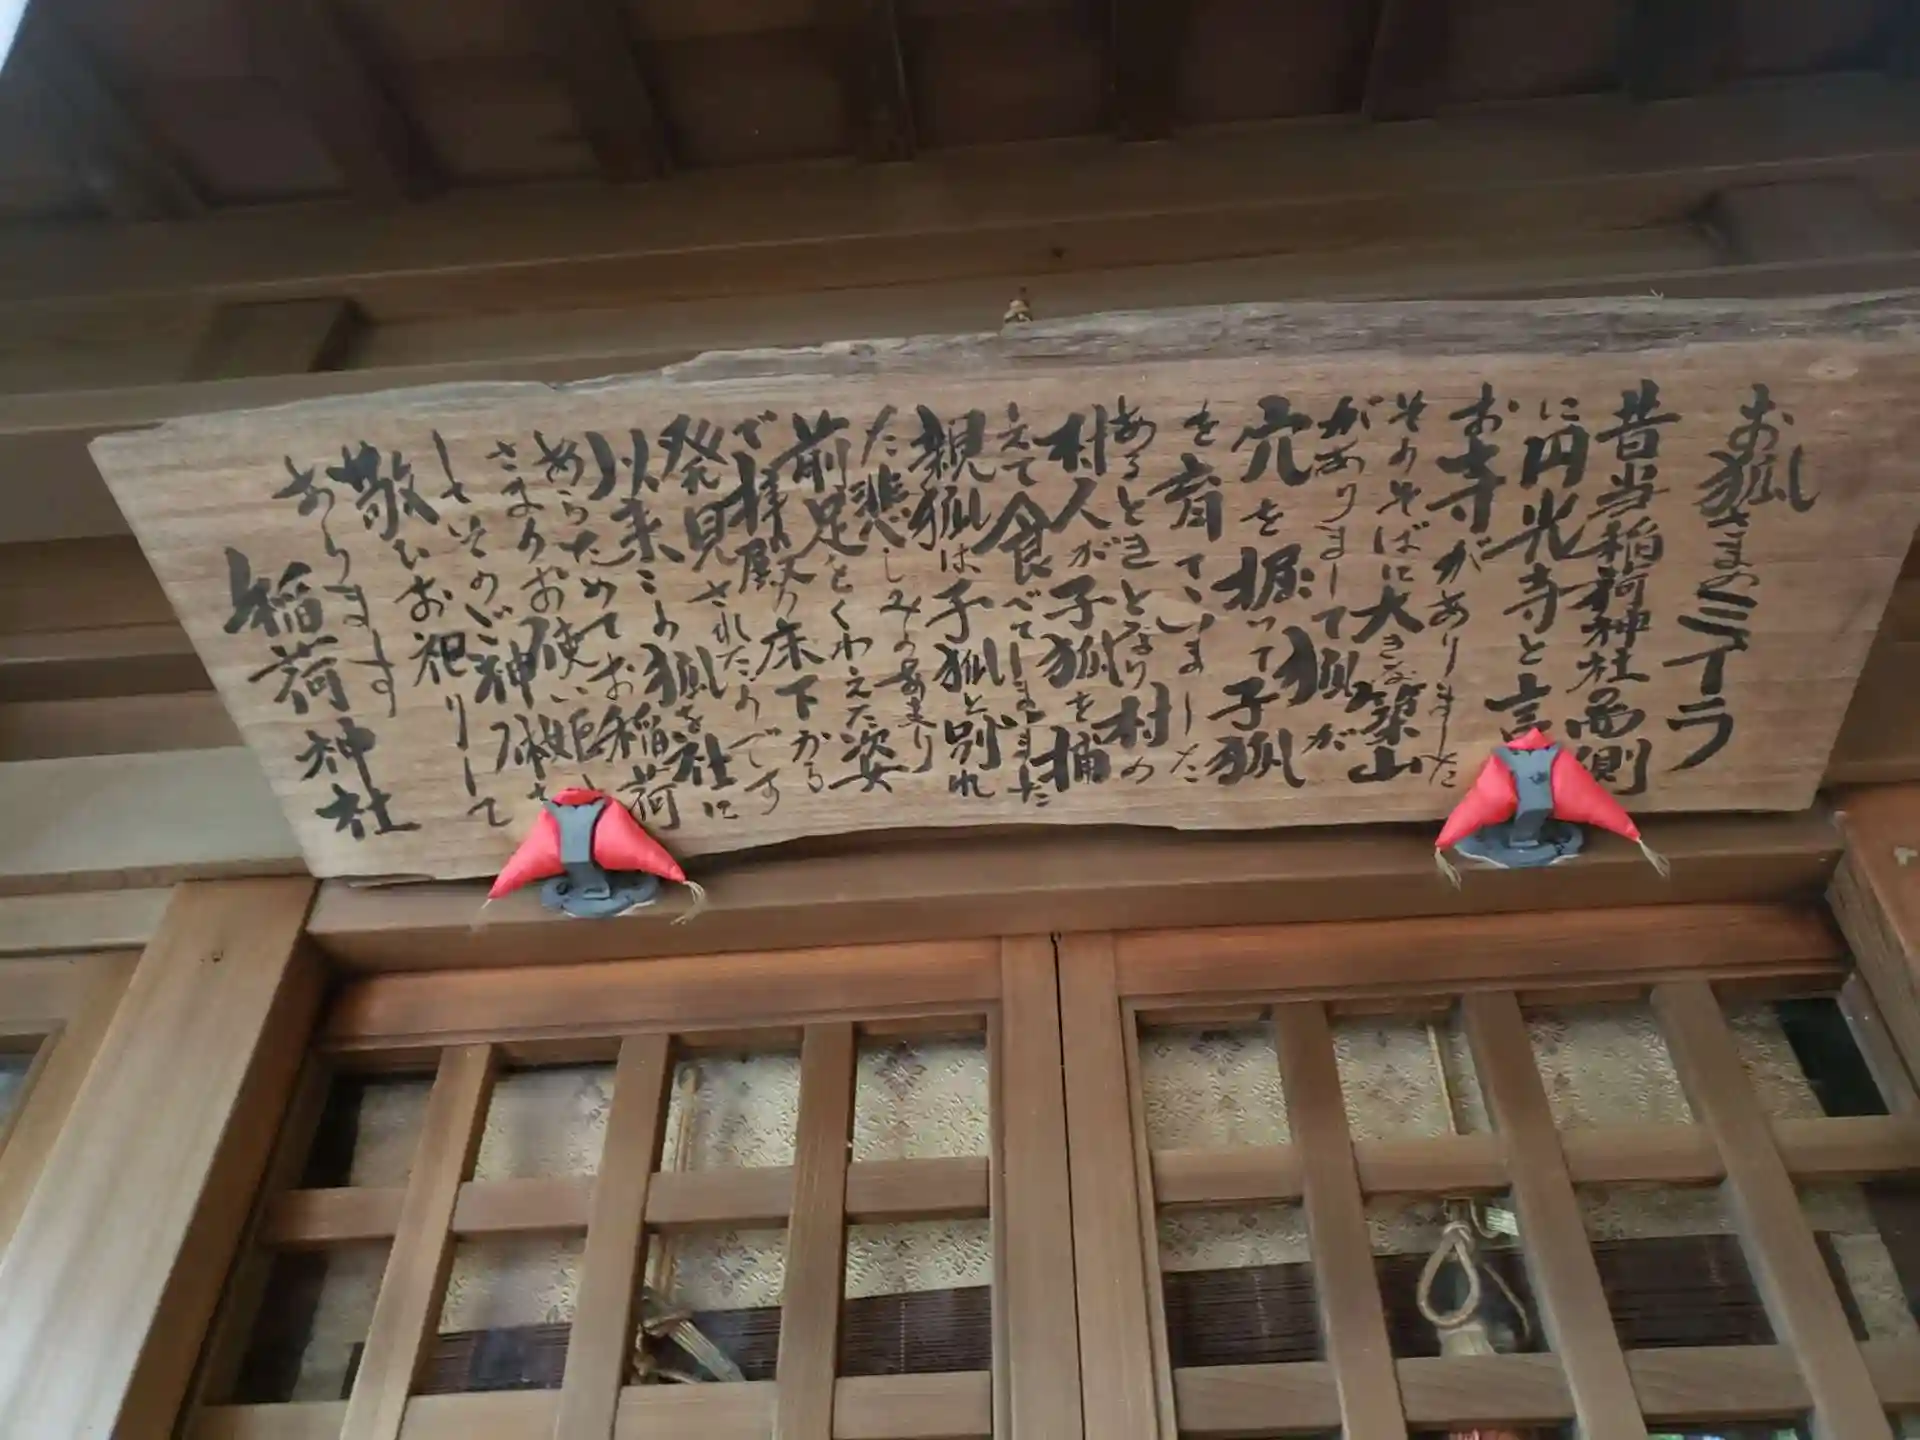 お狐さまのミイラ
昔当稲荷神社西側
に円光寺と言
お寺がありました
そのそばに大きな築山
がありまして狐が
穴を掘って子狐
を育てていました
あるときとなり村の
村人が子狐を捕
えて食べてしまいました
親狐は子狐と別れ
た悲しみのあまり
前足をくわえた姿
で拝殿の床下から
発見されたのです
以来この狐を社に
あらためてお稲荷
さまのお使い
してそのご神
敬ひお祀りして
あります
稲荷神社